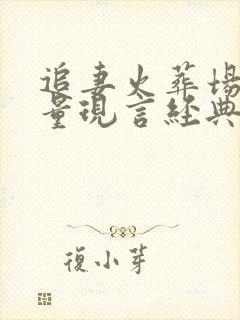 追妻火葬場
量現言經典
復小芽